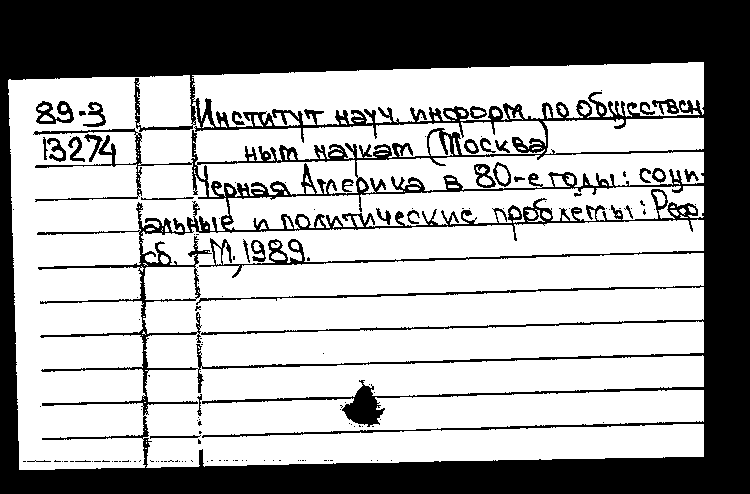 89-3
13274
Институт науч. информ. по обществен-
ным наукам (Москва).
Черная Америка в 80-е годы: соци-
альные и политические проблемы: Реф.
сб. – М., 1989.